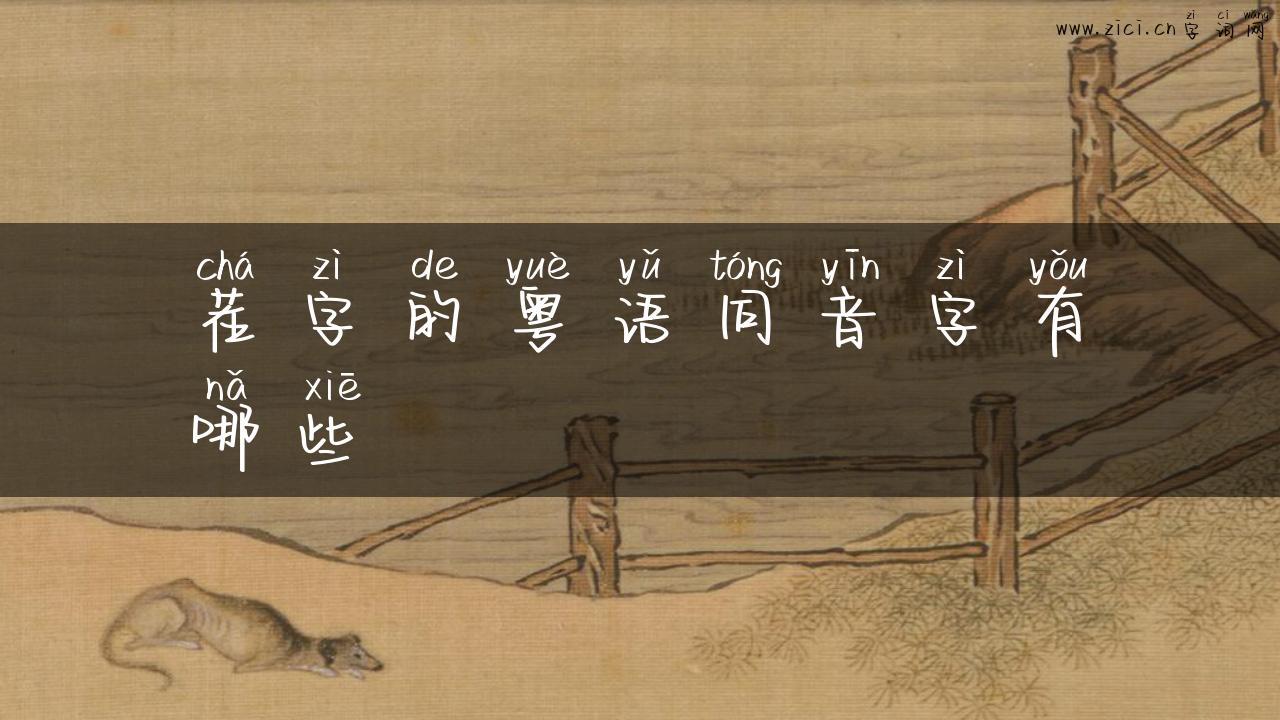 zì cí wǎng
www.zici.cn字词网
chá zì de yuè yǔ tóng yīn zì yǒu
茬字的粤语同音字有
nǎ xiē
哪些